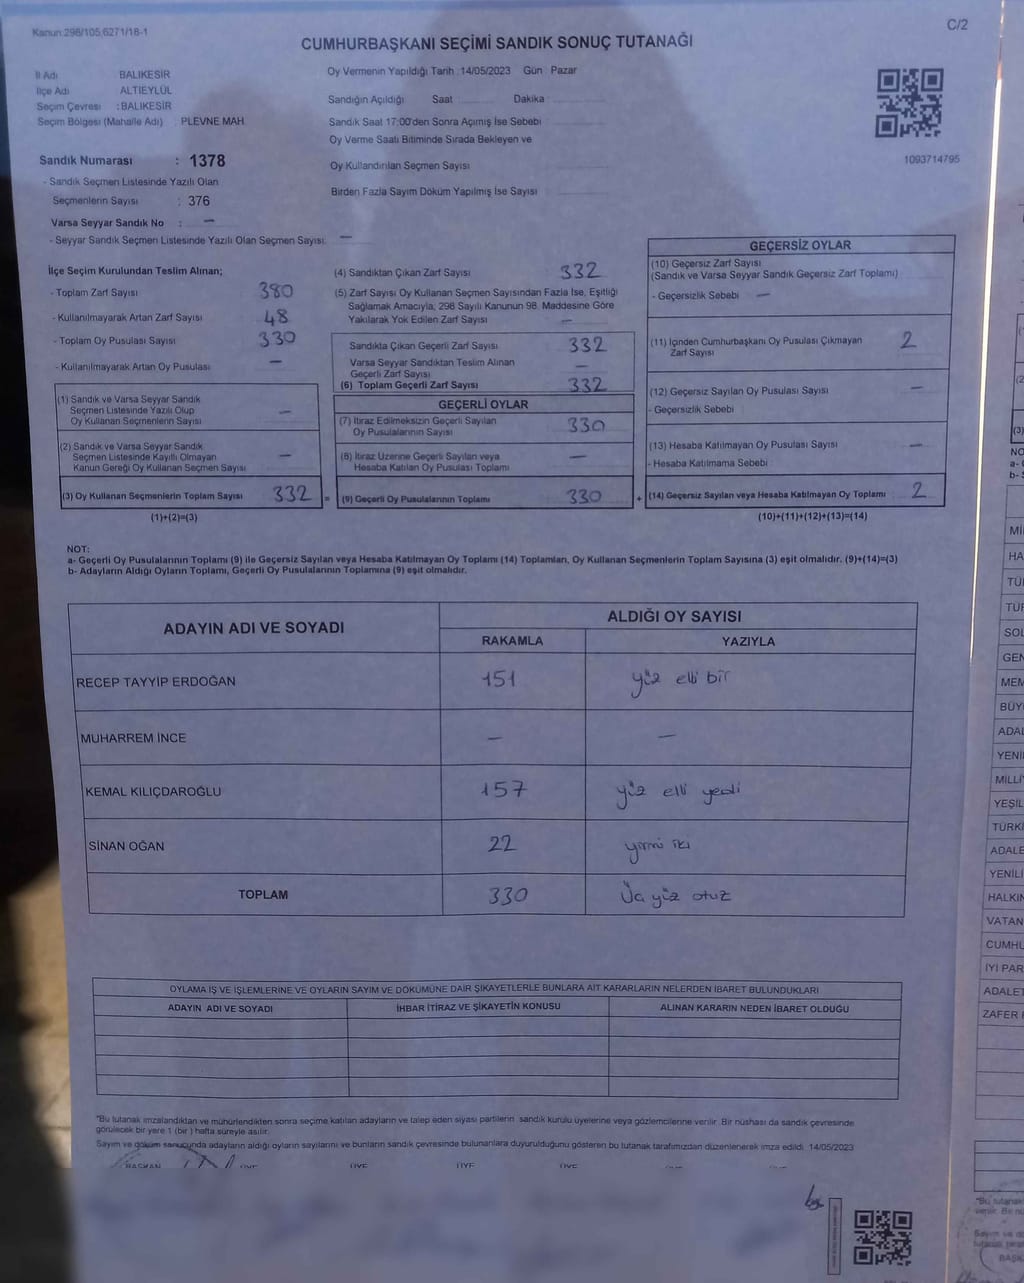 Kanun 298/105,6271/18-1
C/2
CUMHURBAŞKANI SEÇİMİ SANDIK SONUÇ TUTANAĞI
İl Adı BALIKESİR
İlçe Adı ALTIEYLÜL
Seçim Çevresi : BALIKESİR
Seçim Bölgesi (Mahalle Adı) PLEVNE MAH.
Sandık Numarası : 1378
- Sandık Seçmen Listesinde Yazılı Olan
Seçmenlerin Sayısı : 376
Varsa Seyyar Sandık No : —
- Seyyar Sandık Seçmen Listesinde Yazılı Olan Seçmen Sayısı: —
Oy Vermenin Yapıldığı Tarih :14/05/2023 Gün Pazar
Sandığın Açıldığı Saat Dakika
Sandık Saat 17:00'den Sonra Açımış İse Sebebi
Oy Verme Saati Bitiminde Sırada Bekleyen ve
Oy Kullandırılan Seçmen Sayısı
Birden Fazla Sayım Döküm Yapılmış İse Sayısı
1093714795
İlçe Seçim Kurulundan Teslim Alınan;
- Toplam Zarf Sayısı 380
- Kullanılmayarak Artan Zarf Sayısı 48
- Toplam Oy Pusulası Sayısı 330
- Kullanılmayarak Artan Oy Pusulası —
(1) Sandık ve Varsa Seyyar Sandık
Seçmen Listesinde Yazılı Olup
Oy Kullanan Seçmenlerin Sayısı —
(2) Sandık ve Varsa Seyyar Sandık
Seçmen Listesinde Kayıtlı Olmayan
Kanun Gereği Oy Kullanan Seçmen Sayısı —
(3) Oy Kullanan Seçmenlerin Toplam Sayısı 332 =
(1)+(2)=(3)
(4) Sandıktan Çıkan Zarf Sayısı 332
(5) Zarf Sayısı Oy Kullanan Seçmen Sayısından Fazla İse, Eşitliği
Sağlamak Amacıyla; 298 Sayılı Kanunun 98. Maddesine Göre
Yakılarak Yok Edilen Zarf Sayısı —
Sandıkta Çıkan Geçerli Zarf Sayısı 332
Varsa Seyyar Sandıktan Teslim Alınan
Geçerli Zarf Sayısı —
(6) Toplam Geçerli Zarf Sayısı 332
GEÇERLİ OYLAR
(7) İtiraz Edilmeksizin Geçerli Sayılan
Oy Pusulalarının Sayısı 330
(8) İtiraz Üzerine Geçerli Sayılan veya
Hesaba Katılan Oy Pusulası Toplamı —
(9) Geçerli Oy Pusulalarının Toplamı 330 +
GEÇERSİZ OYLAR
(10) Geçersiz Zarf Sayısı
(Sandık ve Varsa Seyyar Sandık Geçersiz Zarf Toplamı)
- Geçersizlik Sebebi —
(11) İçinden Cumhurbaşkanı Oy Pusulası Çıkmayan
Zarf Sayısı 2
(12) Geçersiz Sayılan Oy Pusulası Sayısı —
- Geçersizlik Sebebi
(13) Hesaba Katılmayan Oy Pusulası Sayısı —
- Hesaba Katılmama Sebebi
(14) Geçersiz Sayılan veya Hesaba Katılmayan Oy Toplamı 2
(10)+(11)+(12)+(13)=(14)
NOT:
a- Geçerli Oy Pusulalarının Toplamı (9) ile Geçersiz Sayılan veya Hesaba Katılmayan Oy Toplamı (14) Toplamları, Oy Kullanan Seçmenlerin Toplam Sayısına (3) eşit olmalıdır. (9)+(14)=(3)
b- Adayların Aldığı Oyların Toplamı, Geçerli Oy Pusulalarının Toplamına (9) eşit olmalıdır.
ADAYIN ADI VE SOYADI ALDIĞI OY SAYISI
RAKAMLA YAZIYLA
RECEP TAYYİP ERDOĞAN 151 yüz elli bir
MUHARREM İNCE — —
KEMAL KILIÇDAROĞLU 157 yüz elli yedi
SİNAN OĞAN 22 yirmi iki
TOPLAM 330 Üç yüz otuz
OYLAMA İŞ VE İŞLEMLERİNE VE OYLARIN SAYIM VE DÖKÜMÜNE DAİR ŞİKAYETLERLE BUNLARA AİT KARARLARIN NELERDEN İBARET BULUNDUKLARI
ADAYIN ADI VE SOYADI İHBAR İTİRAZ VE ŞİKAYETİN KONUSU ALINAN KARARIN NEDEN İBARET OLDUĞU
*Bu tutanak imzalandıktan ve mühürlendikten sonra seçime katılan adayların ve talep eden siyasi partilerin sandık kurulu üyelerine veya gözlemcilerine verilir. Bir nüshası da sandık çevresinde
görülecek bir yere 1 (bir) hafta süreyle asılır.
Sayım ve döküm sonucunda adayların aldığı oyların sayılarını ve bunların sandık çevresinde bulunanlara duyurulduğunu gösteren bu tutanak tarafımızdan düzenlenerek imza edildi. 14/05/2023
BAŞKAN ÜYE ÜYE ÜYE ÜYE
(3)
NO
a-
b-
Mİ
HA
TÜ
TÜR
SOL
GEN
MEM
BÜYÜ
ADAL
YENİ
MİLLİ
YEŞİL
TÜRKİ
ADALE
YENİLİ
HALKIN
VATAN
CUMHU
İYİ PAR
ADALET
ZAFER
*Bu tutanak
Sayım ve dö
BAŞK